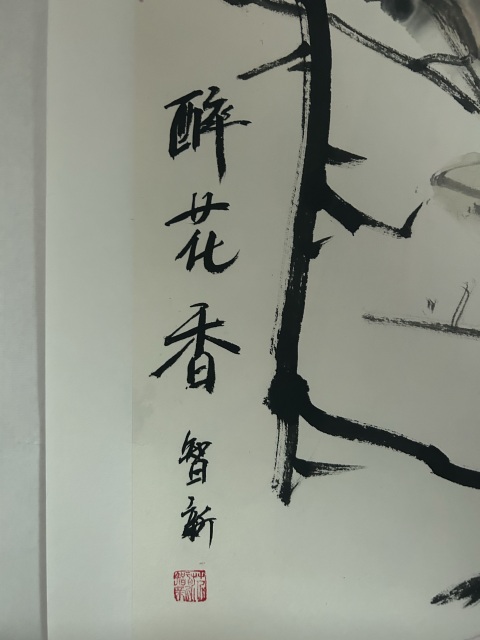 醉花香
智新